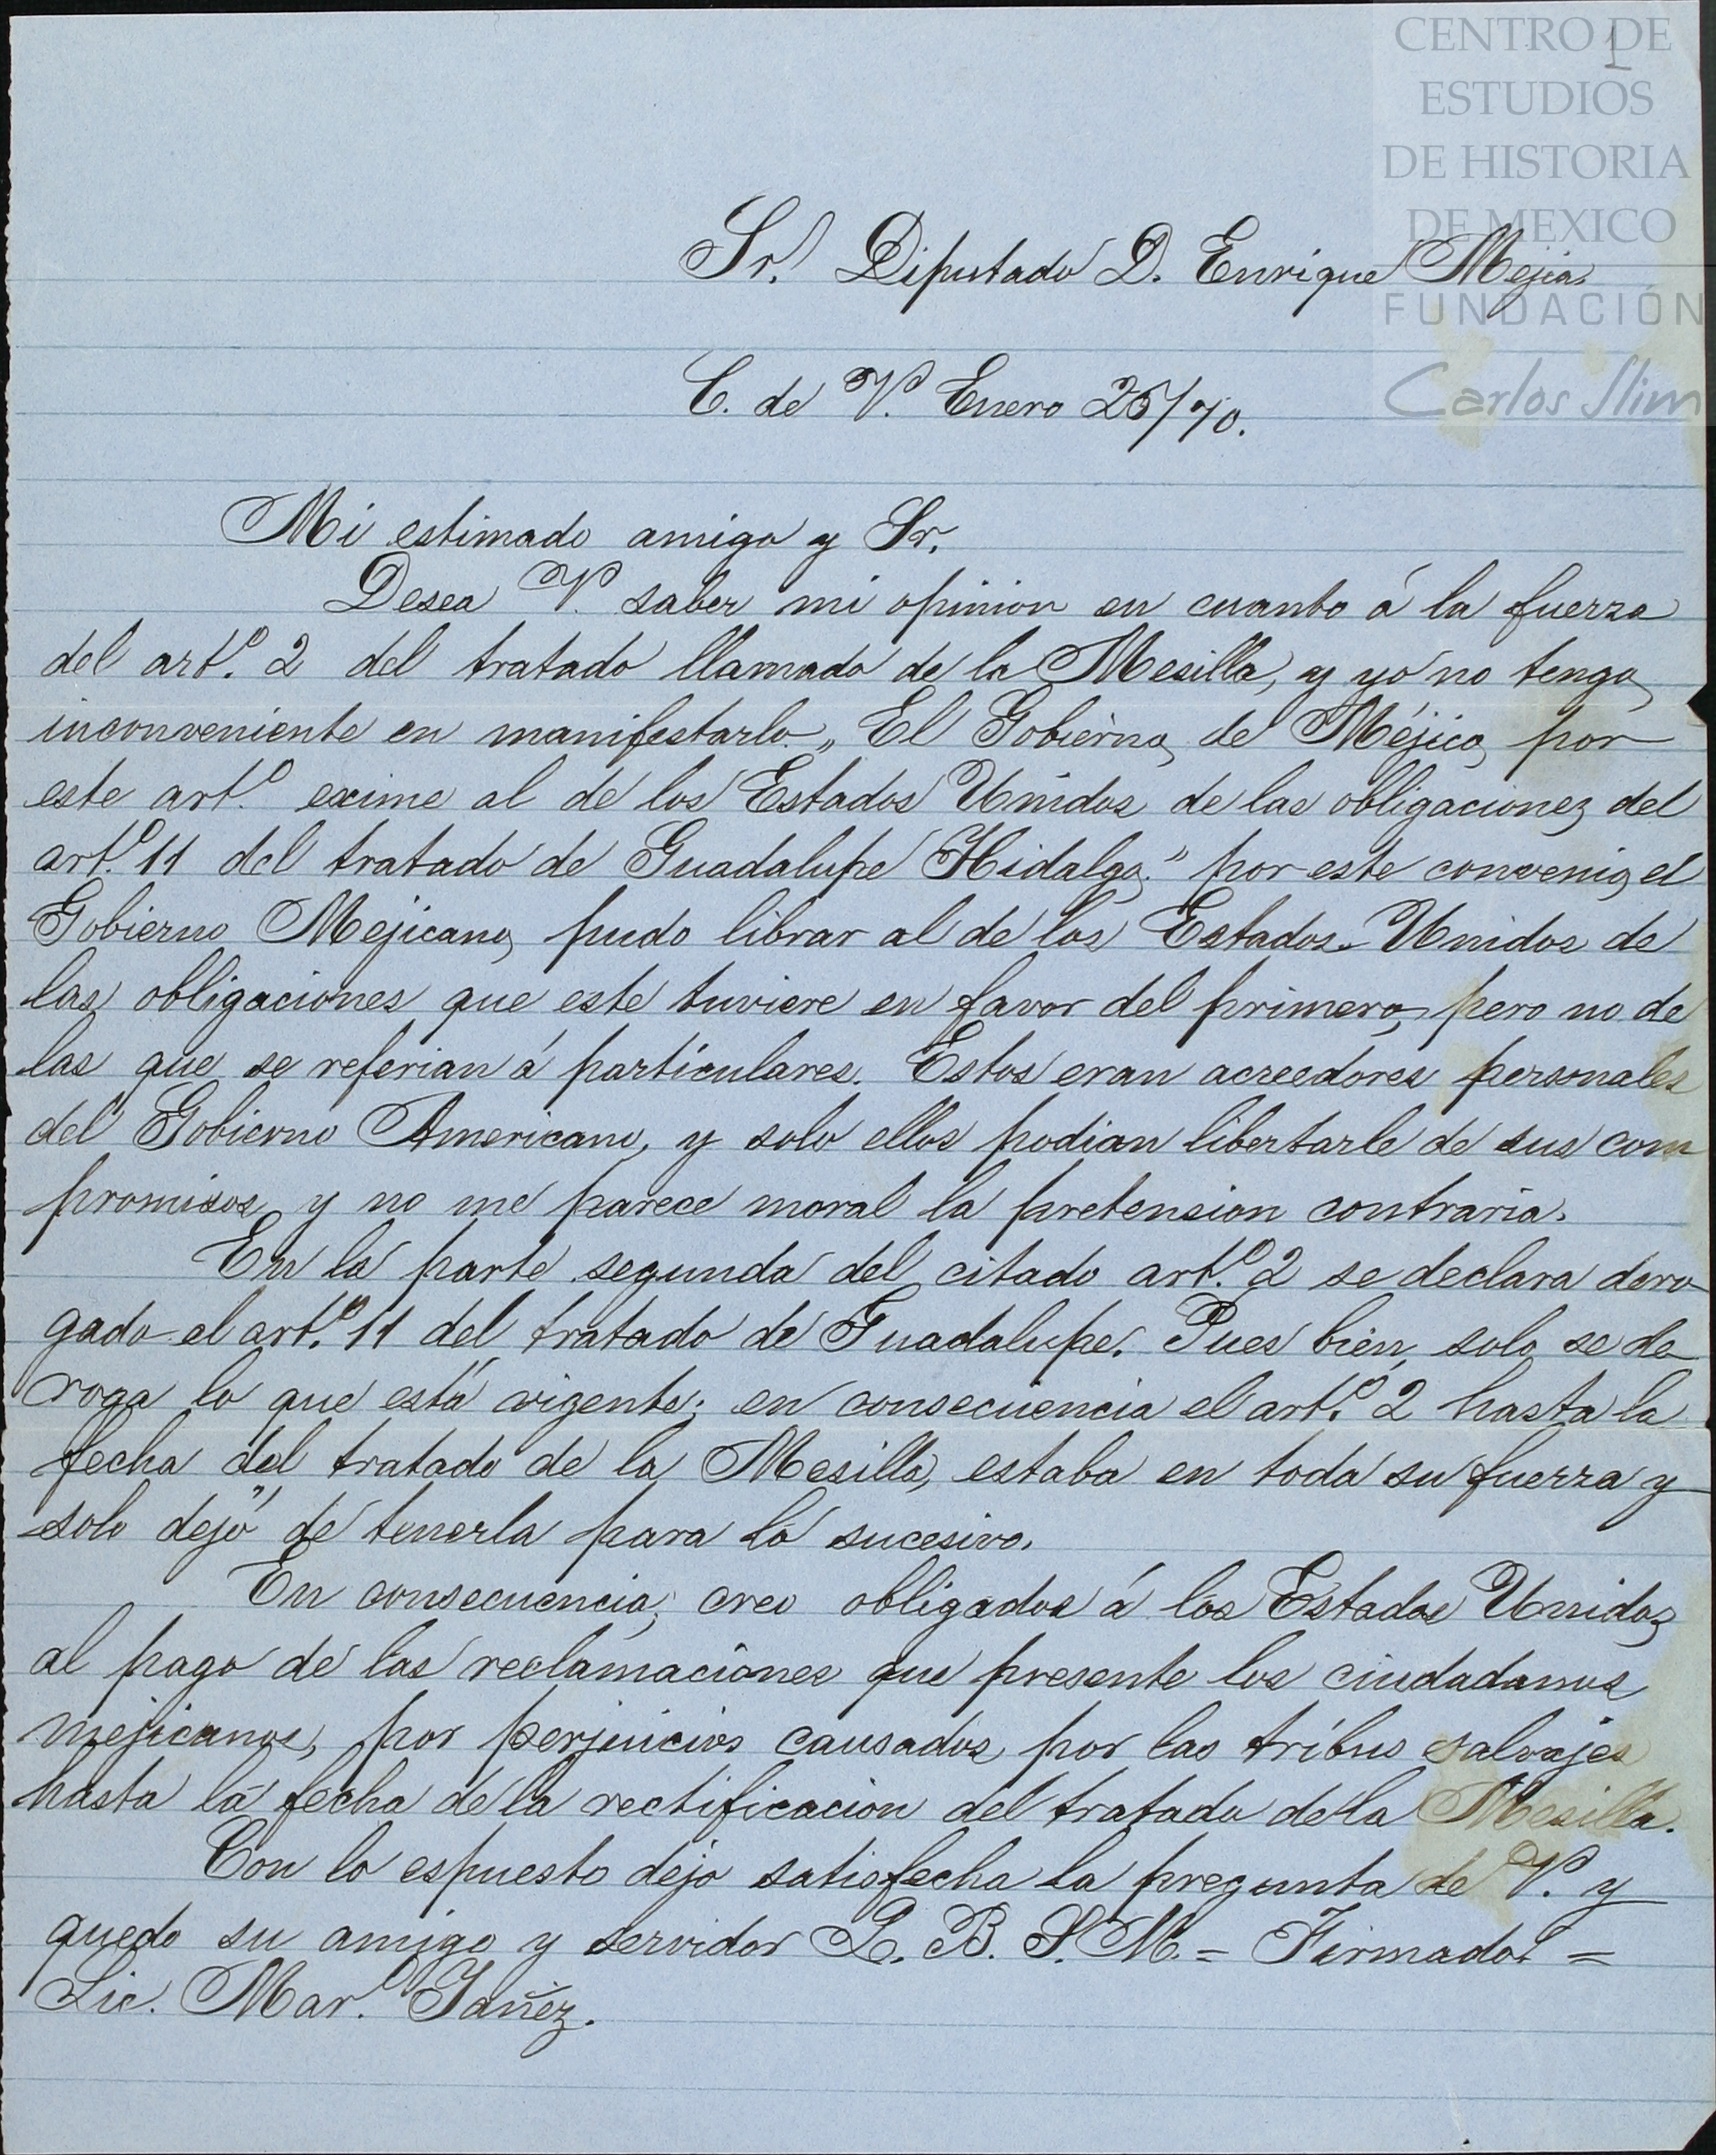 CENTRO DE
ESTUDIOS
DE HISTORIA
DE MEXICO
FUNDACIÓN
Carlos Slim
1
Sr. Diputado D. Enrique Mejia.
C. de V. Enero 25/70.
Mi estimado amigo y Sr.
Desea V. saber mi opinion en cuanto á la fuerza
del art.º 2 del tratado llamado de la Mesilla, y yo no tengo
inconveniente en manifestarlo. „ El Gobierno de Méjico por
este art.º exime al de los Estados Unidos de las obligaciones del
art.º 11 del tratado de Guadalupe Hidalgo." por este convenio, el
Gobierno Mejicano, pudo librar al de los Estados-Unidos de
las obligaciones que este tuviere en favor del primero, pero no de
las que se referian á particulares. Estos eran acreedores personales
del Gobierno Americano, y solo ellos podian libertarle de sus com
promisos, y no me parece moral la pretension contraria.
En la parte segunda del citado art.º 2 se declara dero
gado el art.º 11 del tratado de Guadalupe. Pues bien, solo se de
roga lo que está vigente; en consecuencia el art.º 2 hasta la
fecha del tratado de la Mesilla, estaba en toda su fuerza y
solo dejó de tenerla para lo sucesivo.
En consecuencia, creo obligados á los Estados Unidos
al pago de las reclamaciones que presente los ciudadanos
mejicanos, por perjuicios causados por las tribus salvajes
hasta la fecha de la rectificacion del tratado de la Mesilla.
Con lo espuesto dejo satisfecha la pregunta de V. y
quedo su amigo y servidor Q. B. S. M. = Firmado. =
Lic. Mar. Yañez.